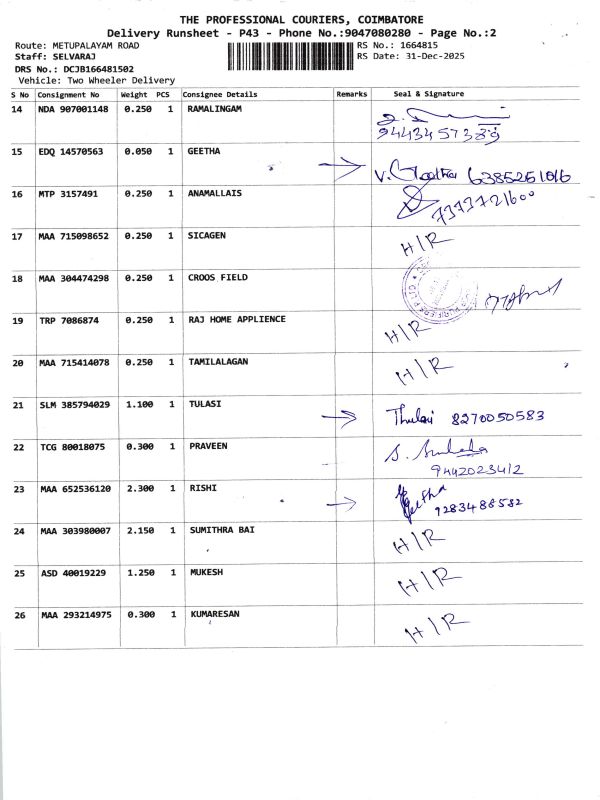 THE PROFESSIONAL COURIERS, COIMBATORE
Delivery Runsheet - P43 - Phone No.:9047080280 - Page No.:2
Route: METUPALAYAM ROAD RS No.: 1664815
Staff: SELVARAJ RS Date: 31-Dec-2025
DRS No.: DCJB166481502
Vehicle: Two Wheeler Delivery
S No Consignment No Weight PCS Consignee Details Remarks Seal & Signature
14 NDA 907001148 0.250 1 RAMALINGAM
9443457389
15 EDQ 14570563 0.050 1 GEETHA
V. Geetha 6385261016
16 MTP 3157491 0.250 1 ANAMALLAIS
7373721600
17 MAA 715098652 0.250 1 SICAGEN H/R
18 MAA 304474298 0.250 1 CROOS FIELD
19 TRP 7086874 0.250 1 RAJ HOME APPLIENCE H/R
20 MAA 715414078 0.250 1 TAMILALAGAN H/R
21 SLM 385794029 1.100 1 TULASI
Thulasi 8270050583
22 TCG 80018075 0.300 1 PRAVEEN
9442023412
23 MAA 652536120 2.300 1 RISHI
Geetha
9283488582
24 MAA 303980007 2.150 1 SUMITHRA BAI H/R
25 ASD 40019229 1.250 1 MUKESH H/R
26 MAA 293214975 0.300 1 KUMARESAN H/R